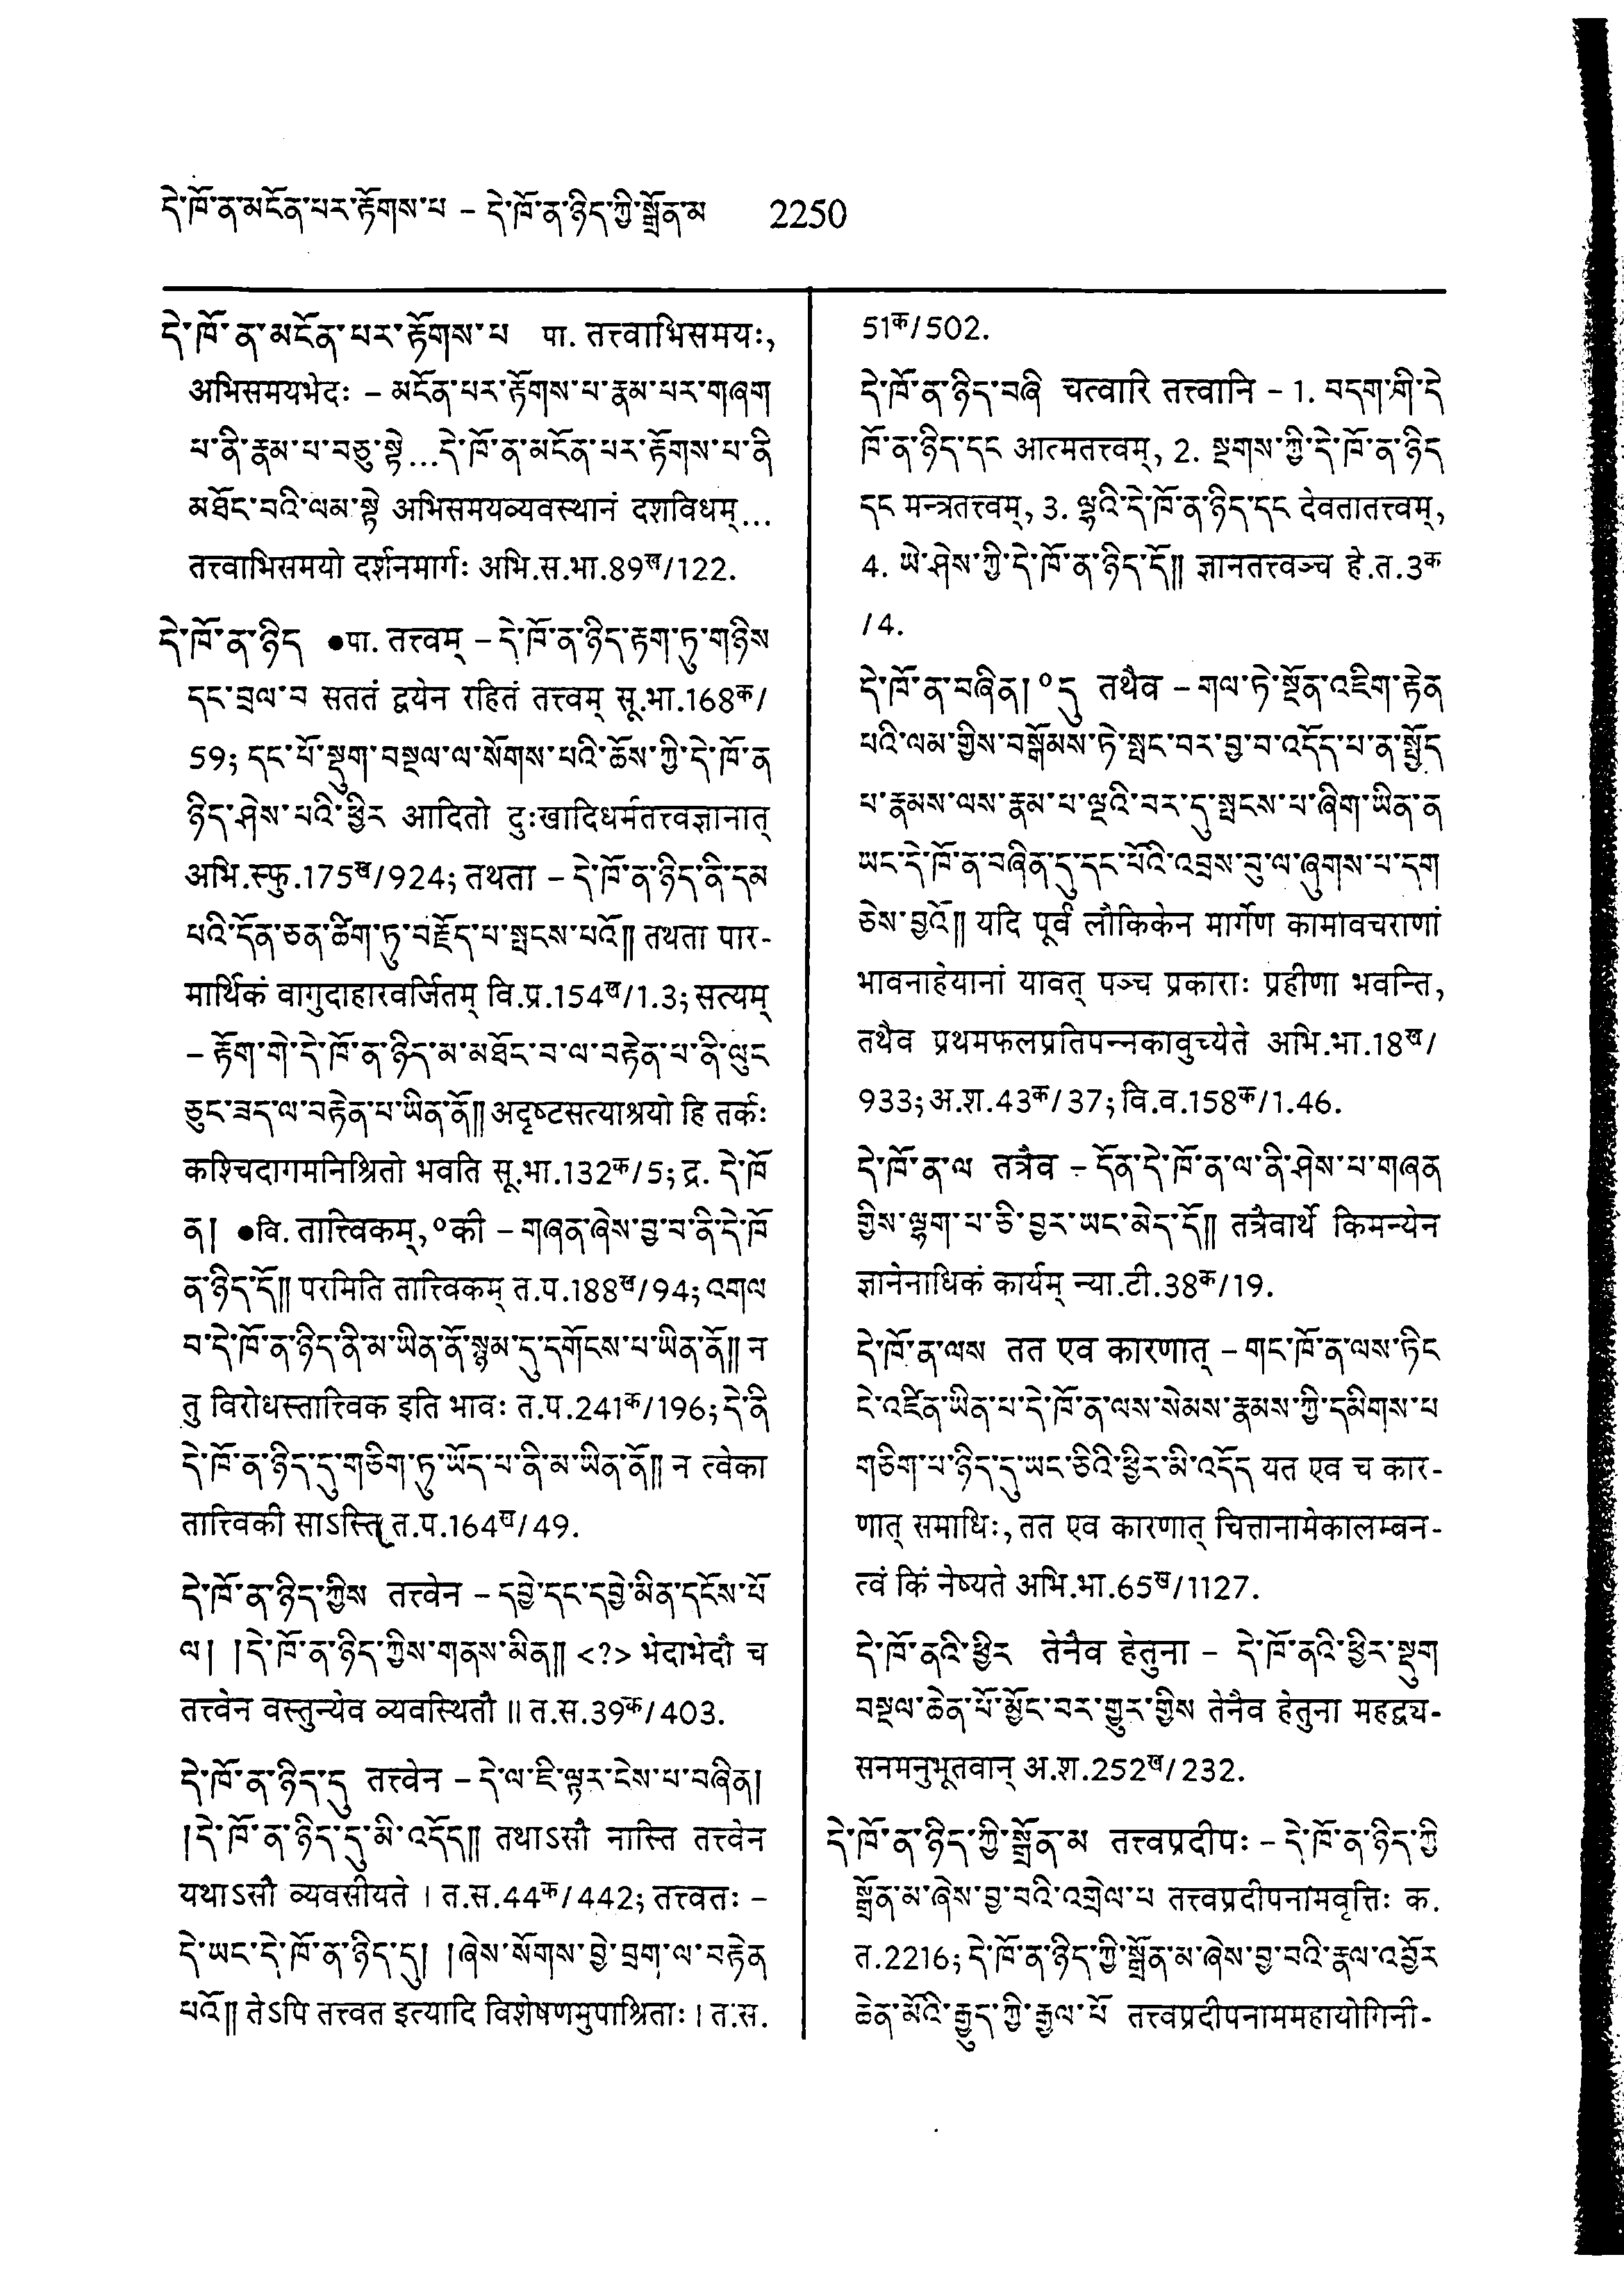 དེ་ཁོ་ན་མངོན་པར་རྟོགས་པ – དེ་ཁོ་ན་ཉིད་ཀྱི་སྒྲོན་མ 2250
དེ་ཁོ་ན་མངོན་པར་རྟོགས་པ पा. तत्त्वाभिसमयः,
अभिसमयभेदः – མངོན་པར་རྟོགས་པ་རྣམ་པར་གཞག
པ་ནི་རྣམ་པ་བཅུ་སྟེ...དེ་ཁོ་ན་མངོན་པར་རྟོགས་པ་ནི
མཐོང་བའི་ལམ་སྟེ अभिसमयव्यवस्थानं दशविधम्...
तत्त्वाभिसमयो दर्शनमार्गः अभि.स.भा.89ख/122.
དེ་ཁོ་ན་ཉིད ●पा. तत्त्वम् – དེ་ཁོ་ན་ཉིད་རྟག་ཏུ་གཉིས
དང་བྲལ་བ सततं द्वयेन रहितं तत्त्वम् सू.भा.168क/
59; དང་པོ་སྡུག་བསྔལ་ལ་སོགས་པའི་ཆོས་ཀྱི་དེ་ཁོ་ན
ཉིད་ཤེས་པའི་ཕྱིར आदितो दुःखादिधर्मतत्त्वज्ञानात्
अभि.स्फु.175ख/924; तथता – དེ་ཁོ་ན་ཉིད་ནི་དམ
པའི་དོན་ཅན་ཚིག་ཏུ་བརྗོད་པ་སྤངས་པའོ༎ तथता पार-
मार्थिकं वागुदाहारवर्जितम् वि.प्र.154ख/1.3; सत्यम्
– རྟོག་གེ་དེ་ཁོ་ན་ཉིད་མ་མཐོང་བ་ལ་བརྟེན་པ་ནི་ལུང
ཅུང་ཟད་ལ་བརྟེན་པ་ཡིན་ནོ༎ अदृष्टसत्याश्रयो हि तर्कः
कश्चिदागमनिश्रितो भवति सू.भा.132क/5; द्र. དེ་ཁོ
ན། ●वि. तात्त्विकम्,॰की – གཞན་ཞེས་བྱ་བ་ནི་དེ་ཁོ
ན་ཉིད་དོ༎ परमिति तात्त्विकम् त.प.188ख/94; འགལ
བ་དེ་ཁོ་ན་ཉིད་ནི་མ་ཡིན་ནོ་སྙམ་དུ་དགོངས་པ་ཡིན་ནོ༎ न
तु विरोधस्तात्त्विक इति भावः त.प.241क/196; དེ་ནི
དེ་ཁོ་ན་ཉིད་དུ་གཅིག་ཏུ་ཡོད་པ་ནི་མ་ཡིན་ནོ༎ न त्वेका
तात्त्विकी साऽस्ति त.प.164ख/49.
དེ་ཁོ་ན་ཉིད་ཀྱིས तत्त्वेन – དབྱེ་དང་དབྱེ་མིན་དངོས་པོ
ལ། །དེ་ཁོ་ན་ཉིད་ཀྱིས་གནས་མིན༎ <?> भेदाभेदौ च
तत्त्वेन वस्तुन्येव व्यवस्थितौ ॥ त.स.39क/403.
དེ་ཁོ་ན་ཉིད་དུ तत्त्वेन – དེ་ལ་ཇི་ལྟར་ངེས་པ་བཞིན།
།དེ་ཁོ་ན་ཉིད་དུ་མི་འདོད༎ तथाऽसौ नास्ति तत्त्वेन
यथाऽसौ व्यवसीयते । त.स.44क/442; तत्त्वतः –
དེ་ཡང་དེ་ཁོ་ན་ཉིད་དུ། །ཞེས་སོགས་བྱེ་བྲག་ལ་བརྟེན
པའོ༎ तेऽपि तत्त्वत इत्यादि विशेषणमुपाश्रिताः । त.स.
51क/502.
དེ་ཁོ་ན་ཉིད་བཞི चत्वारि तत्त्वानि – 1. བདག་གི་དེ
ཁོ་ན་ཉིད་དང आत्मतत्त्वम्, 2. སྔགས་ཀྱི་དེ་ཁོ་ན་ཉིད
དང मन्त्रतत्त्वम्, 3. ལྷའི་དེ་ཁོ་ན་ཉིད་དང देवतातत्त्वम्,
4. ཡེ་ཤེས་ཀྱི་དེ་ཁོ་ན་ཉིད་དོ༎ ज्ञानतत्त्वञ्च हे.त.3क
/4.
དེ་ཁོ་ན་བཞིན། ॰དུ तथैव – གལ་ཏེ་སྔོན་འཇིག་རྟེན
པའི་ལམ་གྱིས་བསྒོམས་ཏེ་སྤང་བར་བྱ་བ་འདོད་པ་ན་སྤྱོད
པ་རྣམས་ལས་རྣམ་པ་ལྔའི་བར་དུ་སྤངས་པ་ཞིག་ཡིན་ན
ཡང་དེ་ཁོ་ན་བཞིན་དུ་དང་པོའི་འབྲས་བུ་ལ་ཞུགས་པ་དག
ཅེས་བྱའོ༎ यदि पूर्वं लौकिकेन मार्गेण कामावचराणां
भावनाहेयानां यावत् पञ्च प्रकाराः प्रहीणा भवन्ति,
तथैव प्रथमफलप्रतिपन्नकावुच्येते अभि.भा.18ख/
933; अ.श.43क/37; वि.व.158क/1.46.
དེ་ཁོ་ན་ལ तत्रैव – དོན་དེ་ཁོ་ན་ལ་ནི་ཤེས་པ་གཞན
གྱིས་ལྷག་པ་ཅི་བྱར་ཡང་མེད་དོ༎ तत्रैवार्थे किमन्येन
ज्ञानेनाधिकं कार्यम् न्या.टी.38क/19.
དེ་ཁོ་ན་ལས तत एव कारणात् – གང་ཁོ་ན་ལས་ཏིང
ངེ་འཛིན་ཡིན་པ་དེ་ཁོ་ན་ལས་སེམས་རྣམས་ཀྱི་དམིགས་པ
གཅིག་པ་ཉིད་དུ་ཡང་ཅིའི་ཕྱིར་མི་འདོད यत एव च कार-
णात् समाधिः, तत एव कारणात् चित्तानामेकालम्बन-
त्वं किं नेष्यते अभि.भा.65ख/1127.
དེ་ཁོ་ནའི་ཕྱིར तेनैव हेतुना – དེ་ཁོ་ནའི་ཕྱིར་སྡུག
བསྔལ་ཆེན་པོ་མྱོང་བར་གྱུར་གྱིས तेनैव हेतुना महद्व्य-
सनमनुभूतवान् अ.श.252ख/232.
དེ་ཁོ་ན་ཉིད་ཀྱི་སྒྲོན་མ तत्त्वप्रदीपः – དེ་ཁོ་ན་ཉིད་ཀྱི
སྒྲོན་མ་ཞེས་བྱ་བའི་འགྲེལ་པ तत्त्वप्रदीपनामवृत्तिः क.
त.2216; དེ་ཁོ་ན་ཉིད་ཀྱི་སྒྲོན་མ་ཞེས་བྱ་བའི་རྣལ་འབྱོར
ཆེན་མོའི་རྒྱུད་ཀྱི་རྒྱལ་པོ तत्त्वप्रदीपनाममहायोगिनी-